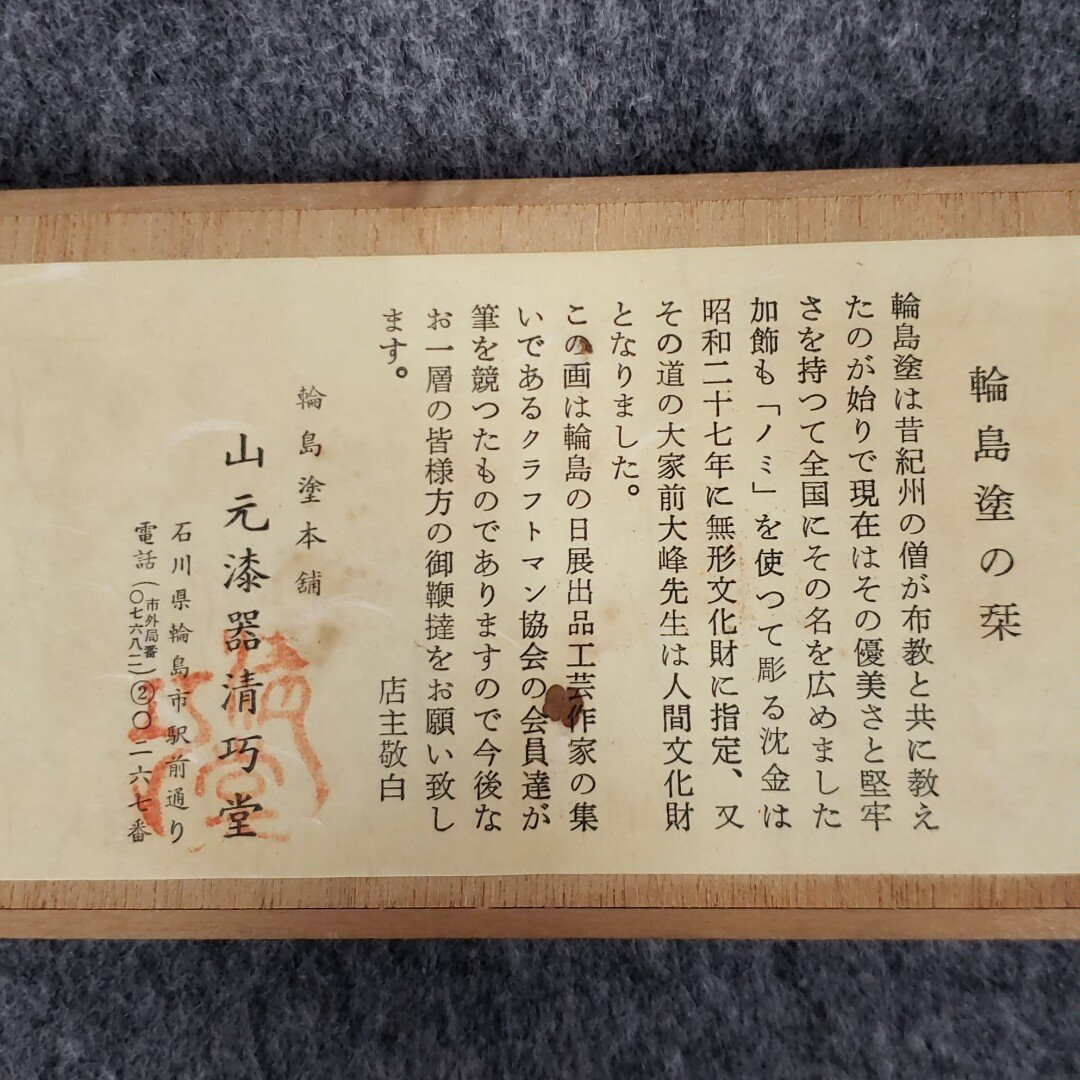 輪島塗の栞
輪島塗は昔紀州の僧が布教と共に教え
たのが始りで現在はその優美さと堅牢
さを持つて全国にその名を広めました
加飾も「ノミ」を使つて彫る沈金は
昭和二十七年に無形文化財に指定、又
その道の大家前大峰先生は人間文化財
となりました。
この画は輪島の日展出品工芸作家の集
いであるクラフトマン協会の会員達が
筆を競つたものでありますので今後な
お一層の皆様方の御鞭撻をお願い致し
ます。
店主敬白
輪島塗本舗
山元漆器清巧堂
石川県輪島市駅前通り
電話(市外局番〇七六八二)②〇二六七番